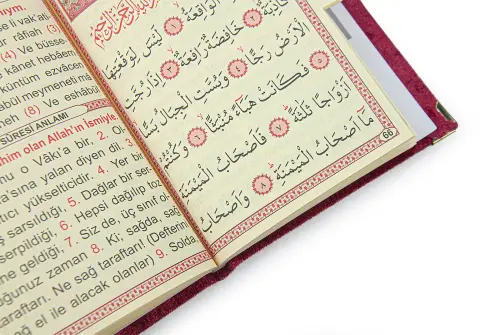 se li vak'ati-
râfiah (3)
(4) Ve büsse-
kânet hebâem
küntüm ezvâcen
meymeneti mâ
(8) Ve eshâbü
SÛRESİ ANLAMI
olan Allah'ın İsmiyle
o Vâkı'a bir, 2. Ol-
yalan diyen dil. 3.
yükselticidir. 4. Yer bir
sarsıldığı, 5. Dağlar bir ser-
serpildiği, 6. Hepsi dağılıp toz
geldiği. 7. Siz de, üç sınıf ol-
zaman 8. Ki; sağda, sağ
Ne sağ taraftarı! (Defterin
el ile alacak olanlar) 9. Solda,
الْوَاقِعَةُ ﴿١﴾ لَيْسَ لِوَقْعَتِهَا
كَاذِبَةٌ ﴿٢﴾ خَافِضَةٌ رَافِعَةٌ ﴿٣﴾ اِذَا رُجَّتِ
الْاَرْضُ رَجًّا ﴿٤﴾ وَبُسَّتِ الْجِبَالُ بَسًّا
﴿٥﴾ فَكَانَتْ هَبَٓاءً مُنْبَثًّا ﴿٦﴾ وَكُنْتُمْ
اَزْوَاجًا ثَلٰثَةً ﴿٧﴾ فَاَصْحَابُ الْمَيْمَنَةِ
مَٓا اَصْحَابُ الْمَيْمَنَةِ ﴿٨﴾ وَاَصْحَابُ
66